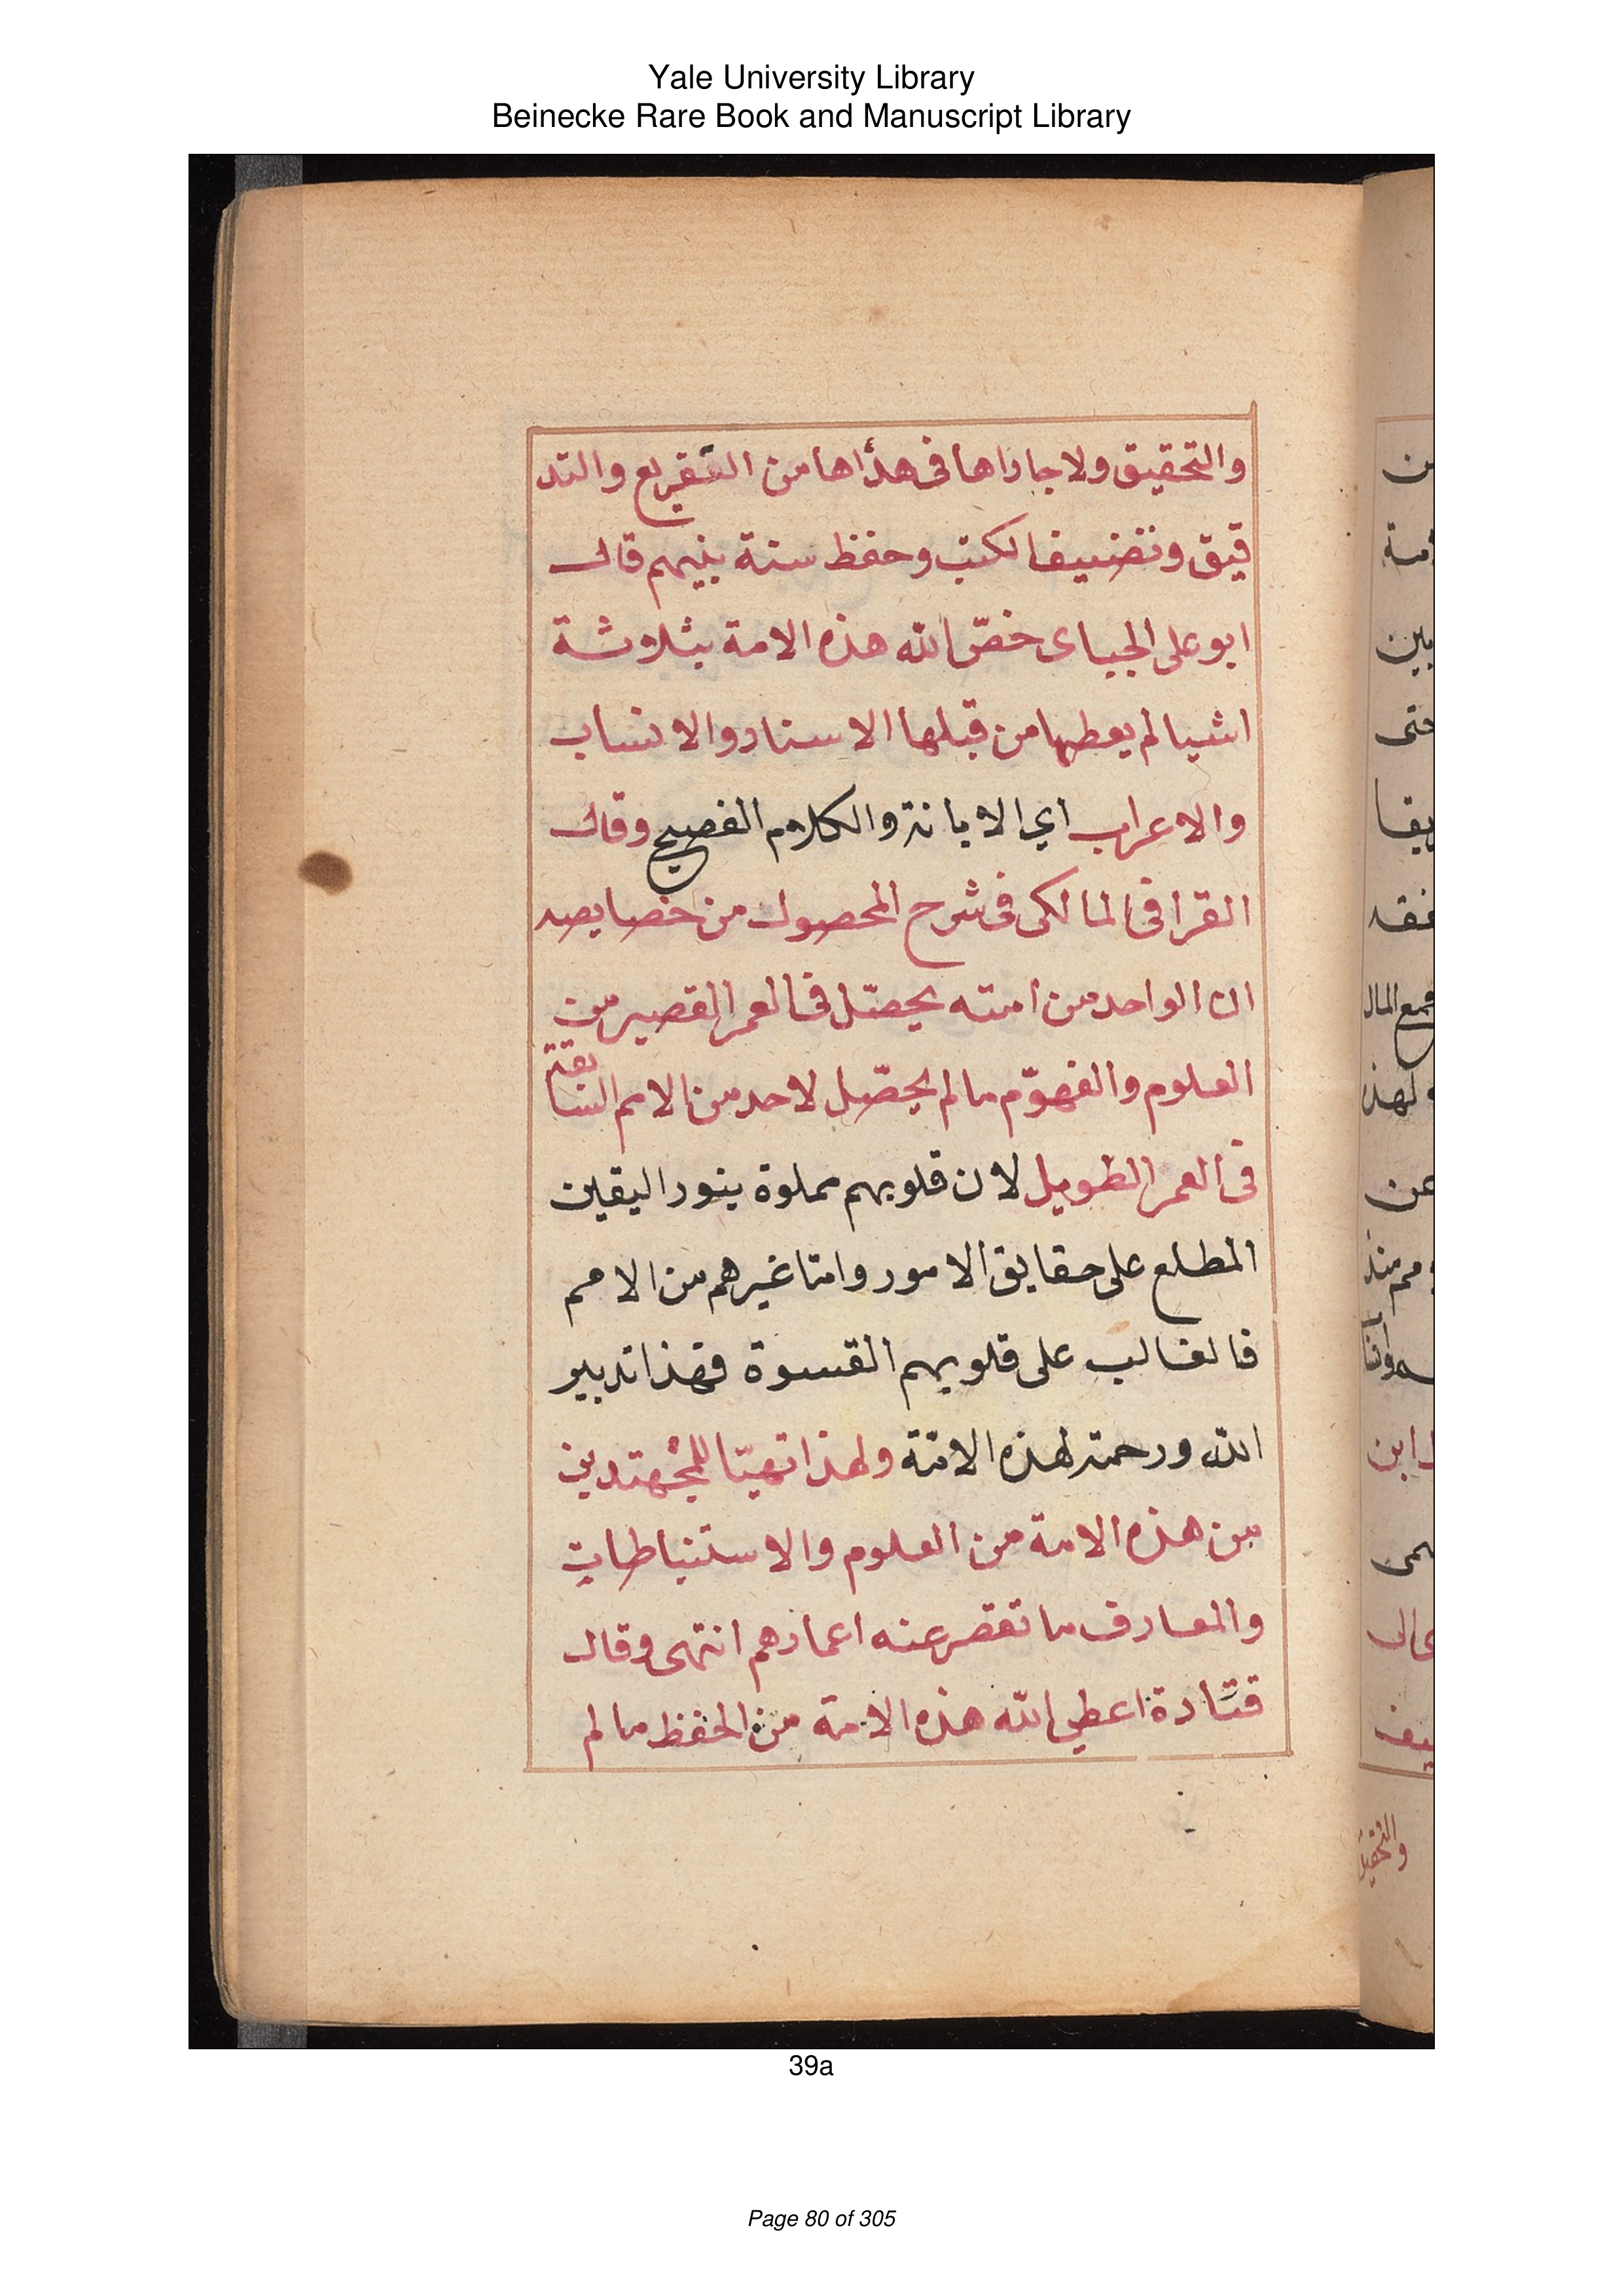 Yale University Library
Beinecke Rare Book and Manuscript Library
والتحقيق ولا جاراها فى هذاها من التفريع والتد
قيق وتصنيف الكتب وحفظ سنة بنيهم قال
ابو على الجياى خصّ الله هذه الامة بثلاثة
اشيا لم يعطها من قبلها الاسناد والانساب
والاعراب اي الابانة والكلام الفصيح وقال
القرافى المالكى فى شرح المحصول من خصايصه
ان الواحد من امته يحصّل فى العمر القصير من
العلوم والفهوم ما لم يحصّل لاحد من الامم السابقة
فى العمر الطويل لان قلوبهم مملوة بنور اليقين
المطلع على حقايق الامور وامّا غيرهم من الامم
فالغالب على قلوبهم القسوة فهذا تدبير
الله ورحمته لهذه الامّة ولهذا تهيّا للمجتهدين
من هذه الامة من العلوم والاستنباطات
والمعارف ما تقصر عنه اعمارهم انتهى وقال
قتادة اعطي الله هذه الامة من الحفظ ما لم
39a
Page 80 of 305